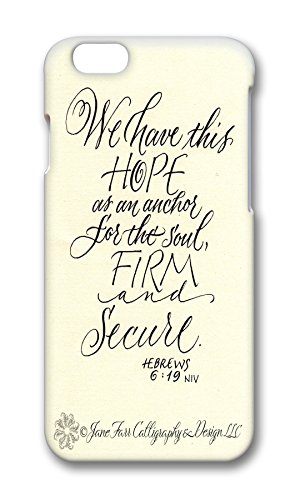 We have this
HOPE
as an anchor
for the soul,
FIRM
and
Secure.
HEBREWS
6:19 NIV
© Jane Farr Calligraphy & Design LLC